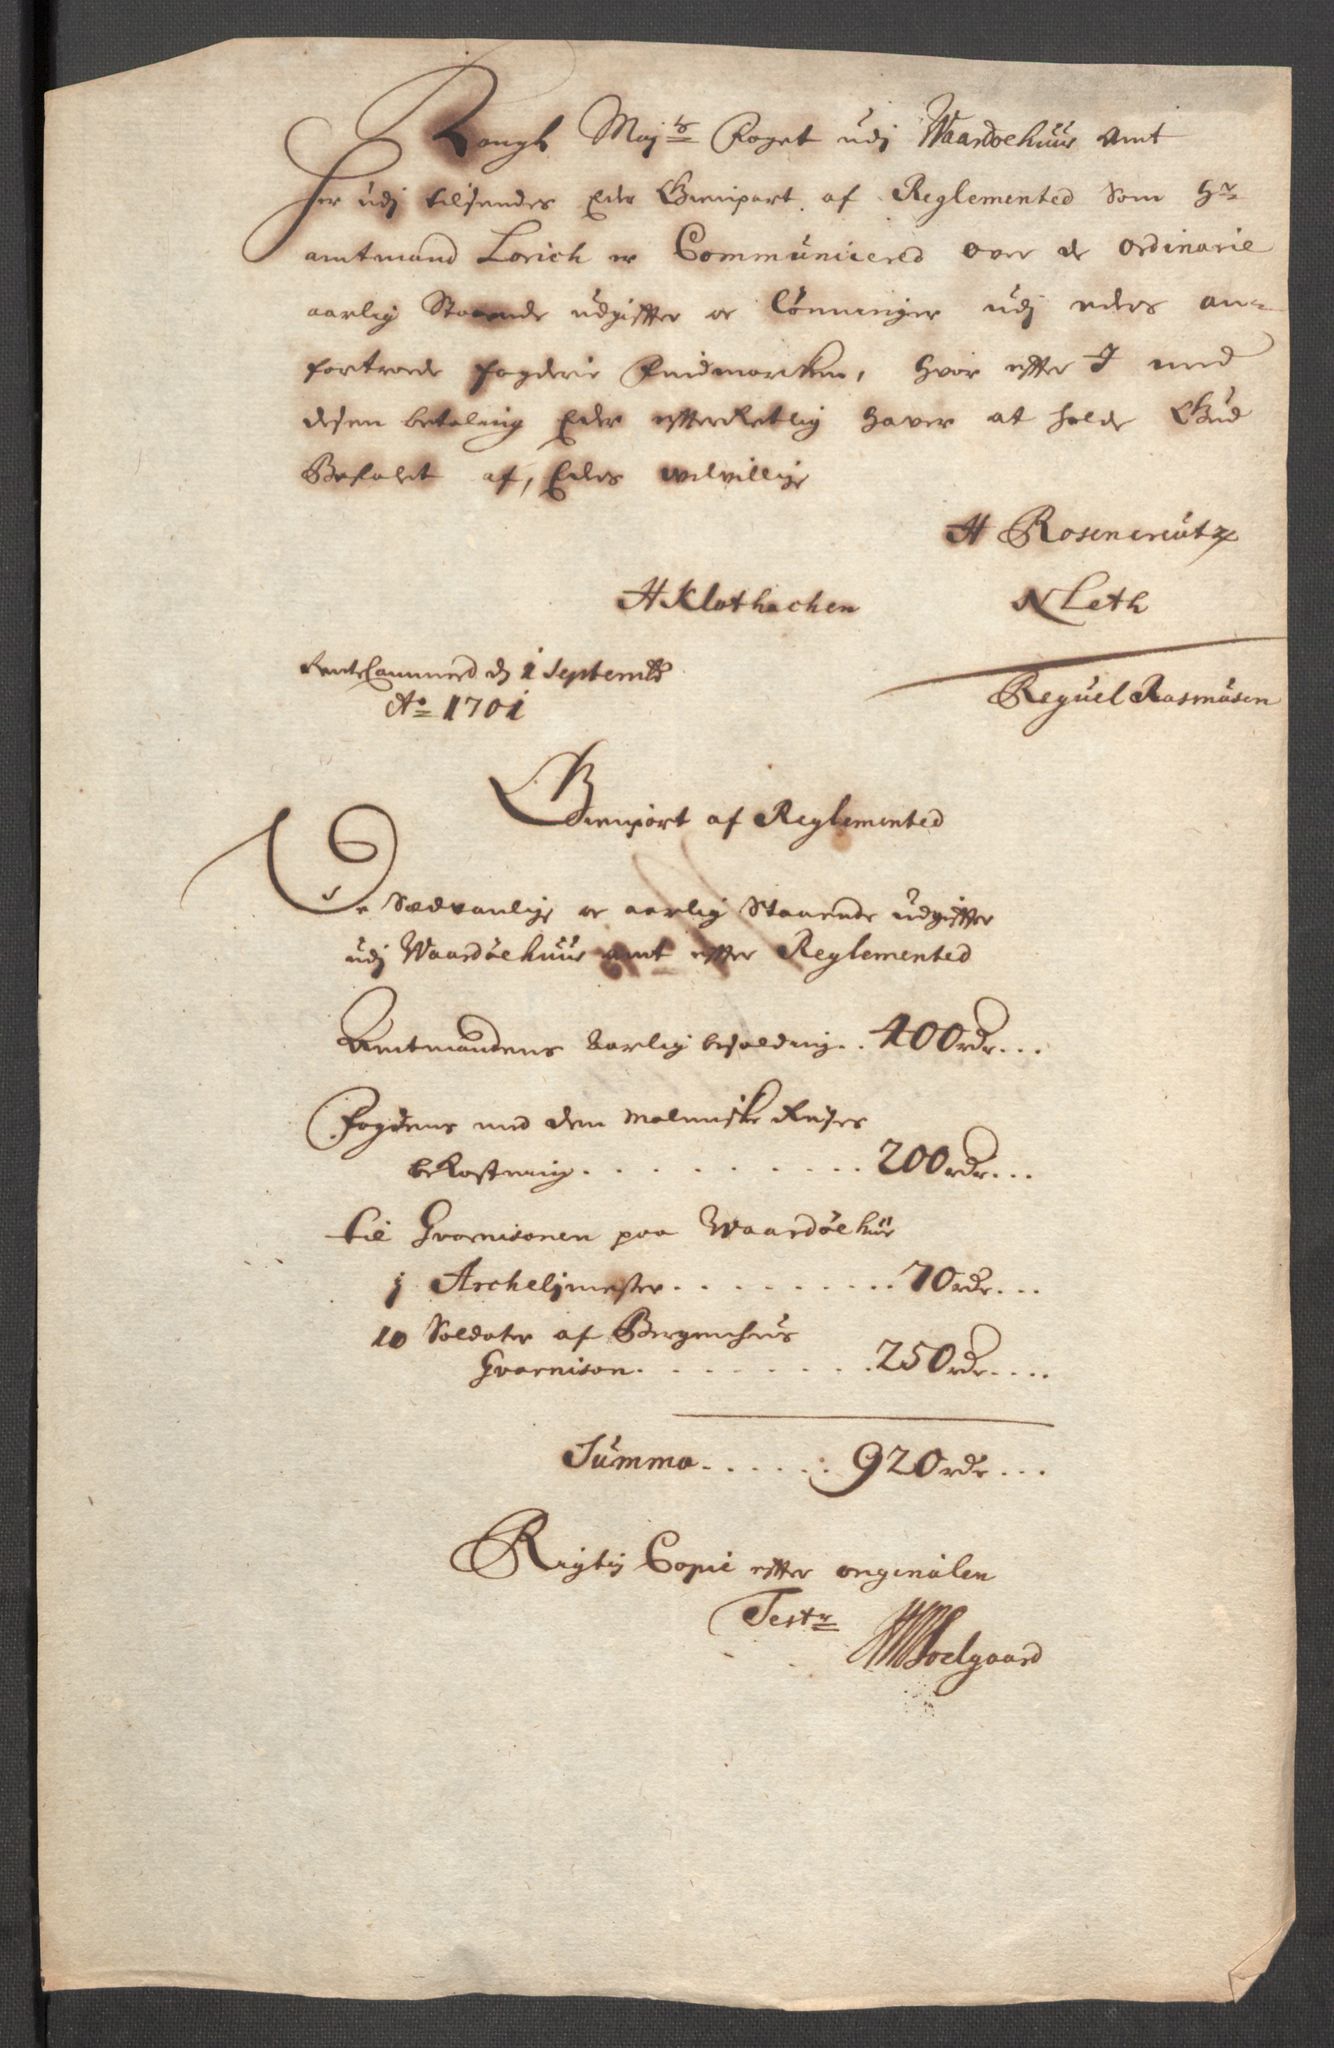 Kongl Maj:ts Foget udj Waardoehuus Amt
Her udj tilsendes Eder Gienpart af Reglemented Som Hr
amtmand Lorich er Communicered over de Ordinarie
aarlig Staaende udgiffter oc Lønninger udj eders an-
fortroede fogderie Findmarcken, Hvor effter I med
desen betaling Eder effterRetlig haver at holde Gud
Befalet af, Eders velvillige
H Rosencreütz
H Klothachen N Leth
RenteCammered dj 1 Septembr
Ao 1701
Reguel Rasmüsen
Gienpart af Reglemented
De Sædvanlige oc aarlig Staaende udgiffter
udj Waardøehuus amt effter Reglemented
Amtmandens Aarlig besolding.. 400 rdr...
Fogdens med den Malmiske Reises
beKostning. . . . . . . . . . 200 rdr...
til Gvarnisonen paa Waardøehuus
1 Archelimester. . . . . . . . . . 70 rdr...
10 Soldater af Bergenhuus
Gvarnison. . . . . . . . 250 rdr....
Summa. . . . . : 920 rdr...
Rigtig Copie effter originalen
Testr
Soelgaard